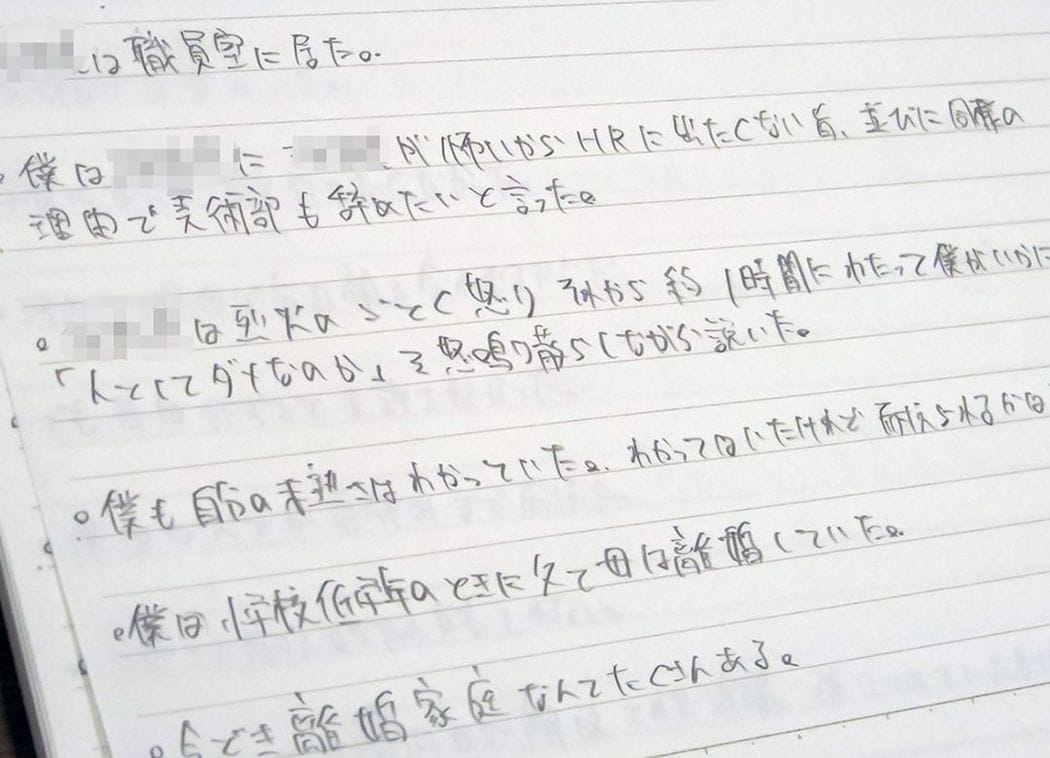 は職員室に居た。
僕は に が怖いからHRに出たくない旨、並びに同様の
理由で美術部も辞めたいと言った。
は烈火のごとく怒り それから約1時間にわたって僕がいかに
「人としてダメなのか」を怒鳴り散らしながら説いた。
僕も自分の未熟さはわかっていた。わかってはいたけれど 耐えられるかは
僕は小学校低学年のときに父と母は離婚していた。
今どき離婚家庭なんてたくさんある。